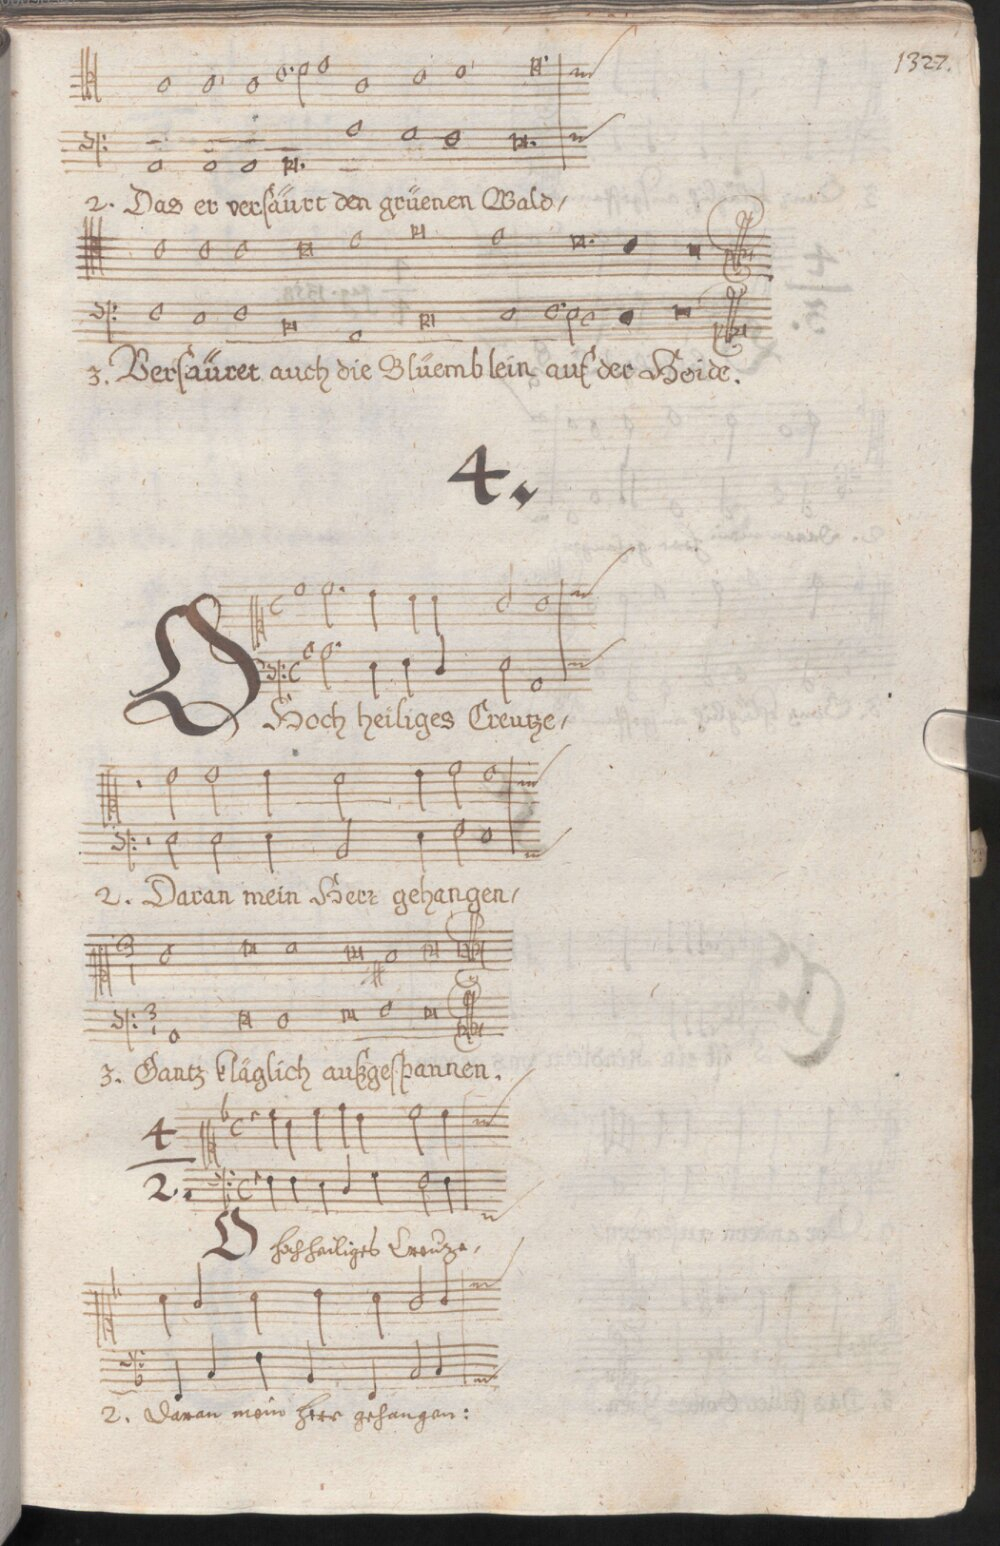 1327.
2. Das er versäurt den grüenen Wald/
3. Versäuret auch die Blüemblein auf der Heide.
4.
O Hoch heiliges Creutze/
2. Daran mein Herr gehangen/
3. Gantz kläglich außgespannen.
4
2.
O hochheiliges Creutze,
2. Daran mein Herr gehangen: